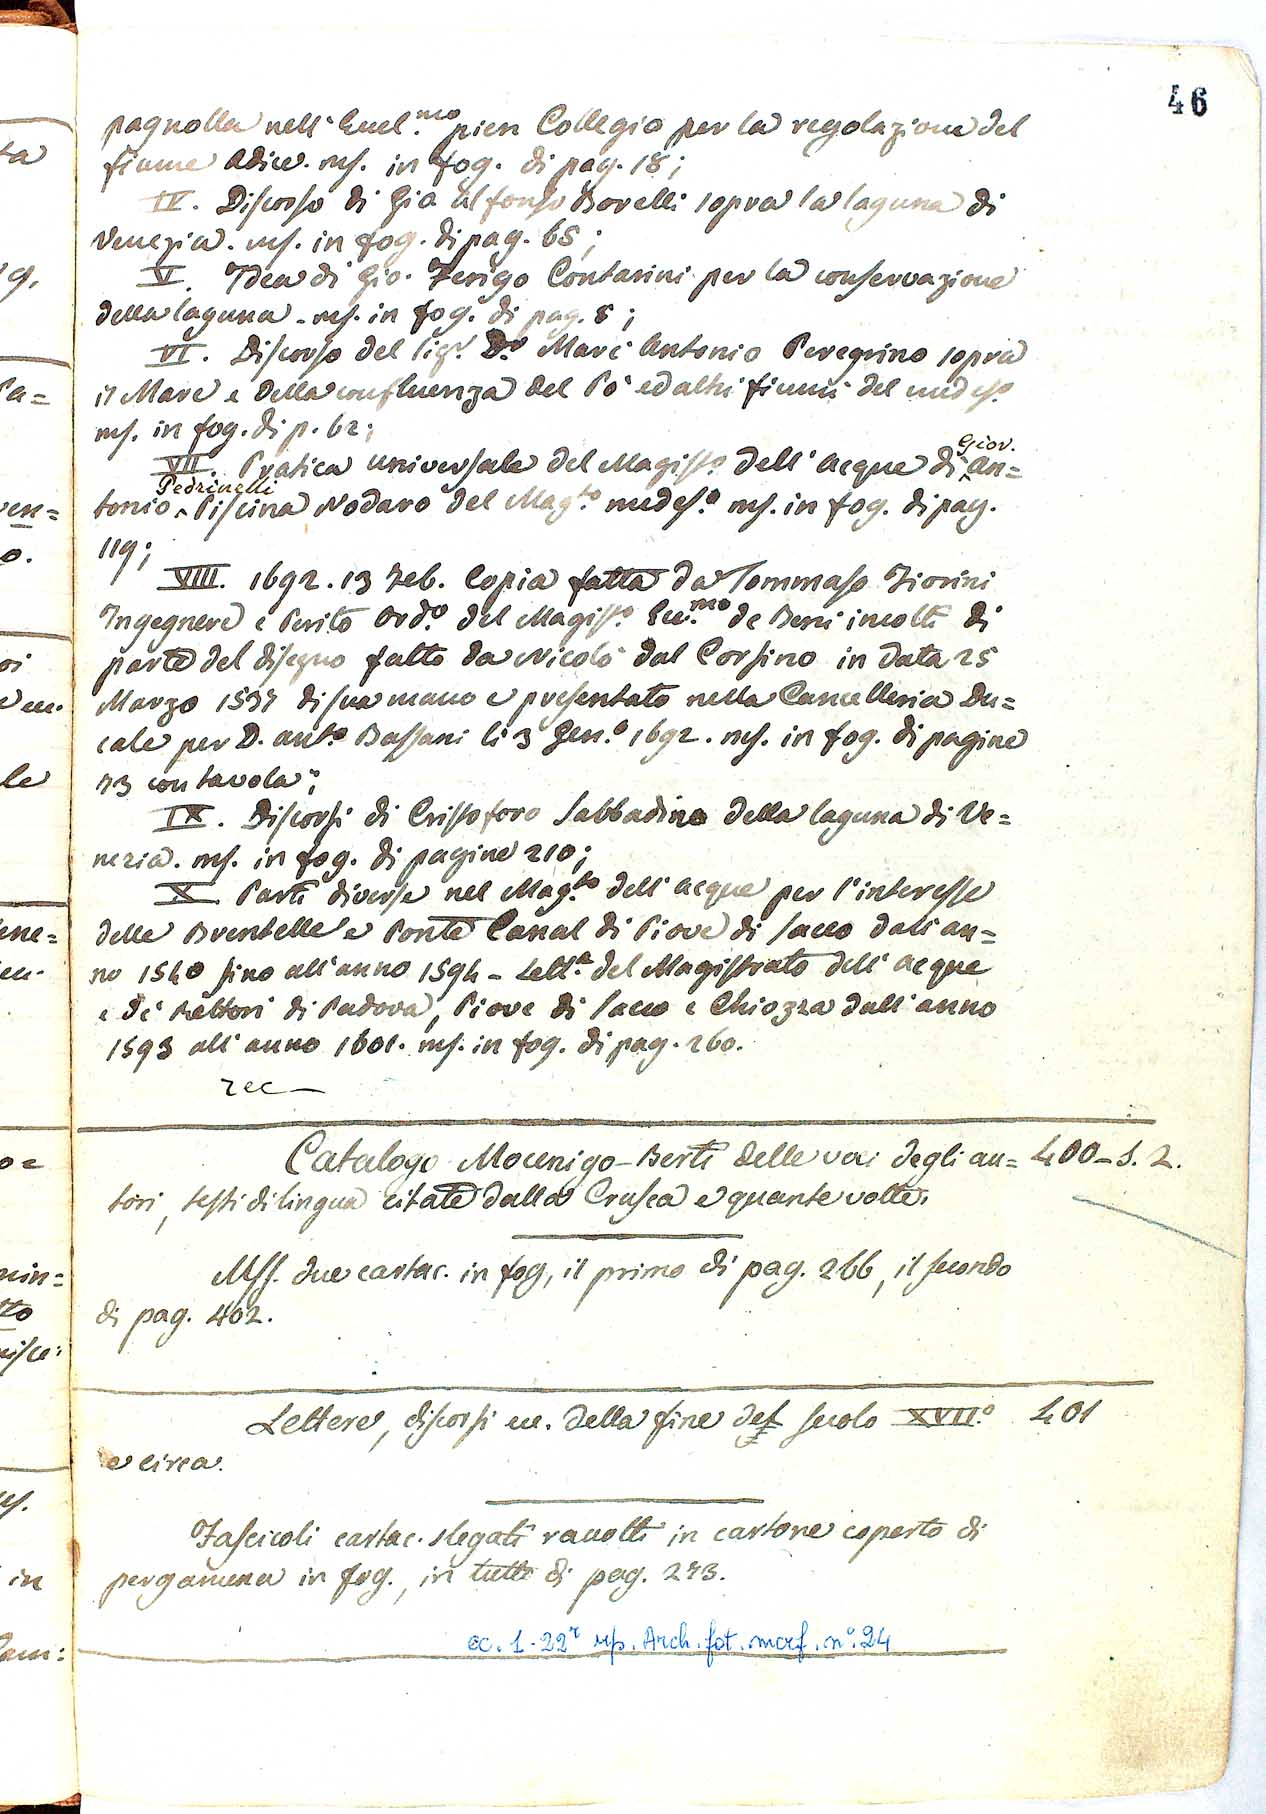 46
pagnolla nell' Ecel.mo pien Collegio per la regolazione del
fiume Adice. ms. in fog. di pag. 18;
IV. Discorso di Gio Alfonso Borelli sopra la laguna di
Venezia. ms. in fog. di pag. 65;
V. Idea di Gio. Ferigo Contarini per la conservazione
della laguna. ms. in fog. di pag. 8;
VI. Discorso del Sigr. Dr. Marc' Antonio Peregrino sopra
il Mare e della confluenza del Po' ed altri fiumi del medeso.
ms. in fog. di p. 62;
Giov.
VII. Pratica universale del Magisto. dell' Acque di ^ An=
Pedrinelli
tonio ^ Piscina Nodaro del Magto. medes.o ms. in fog. di pag.
119;
VIII. 1692. 13 Feb. Copia fatta da Tommaso Fiorini
Ingegnere e Perito Ord.o del Magist.o Ecc.mo de Beni inculti di
parte del disegno fatto da Nicolò dal Cortino in data 25
Marzo 1537 di sua mano e presentato nella Cancelleria Du=
cale per D. Ant.o Bassani li 3 Gen.o 1692. ms. in fog. di pagine
73 con tavola;
IX. Discorsi di Cristoforo Sabbadino della laguna di Ve=
nezia. ms. in fog. di pagine 210;
X. Parti diverse nel Mag.to dell' Acque per l'interesse
delle Brentelle e Ponte Canal di Piove di Sacco dall' an=
no 1540 sino all' anno 1594 - Lett.e del Magistrato dell' Acque
e de' Rettori di Padova, Piove di Sacco e Chiozza dall' anno
1593 all' anno 1601. ms. in fog. di pag. 260.
rec
Catalogo Mocenigo-Berti delle voci degli au= 400-S. 2.
tori, testi di lingua citate dalla Crusca e quante volte.
Mss. due cartac. in fog, il primo di pag. 266, il secondo
di pag. 402.
Lettere, discorsi ec. della fine del secolo XVII.o 401
e circa.
Fascicoli cartac. slegati ravolti in cartone coperto di
pergamena in fog., in tutto di pag. 273.
cc. 1-22r rip. Arch. fot. marc. n°. 24